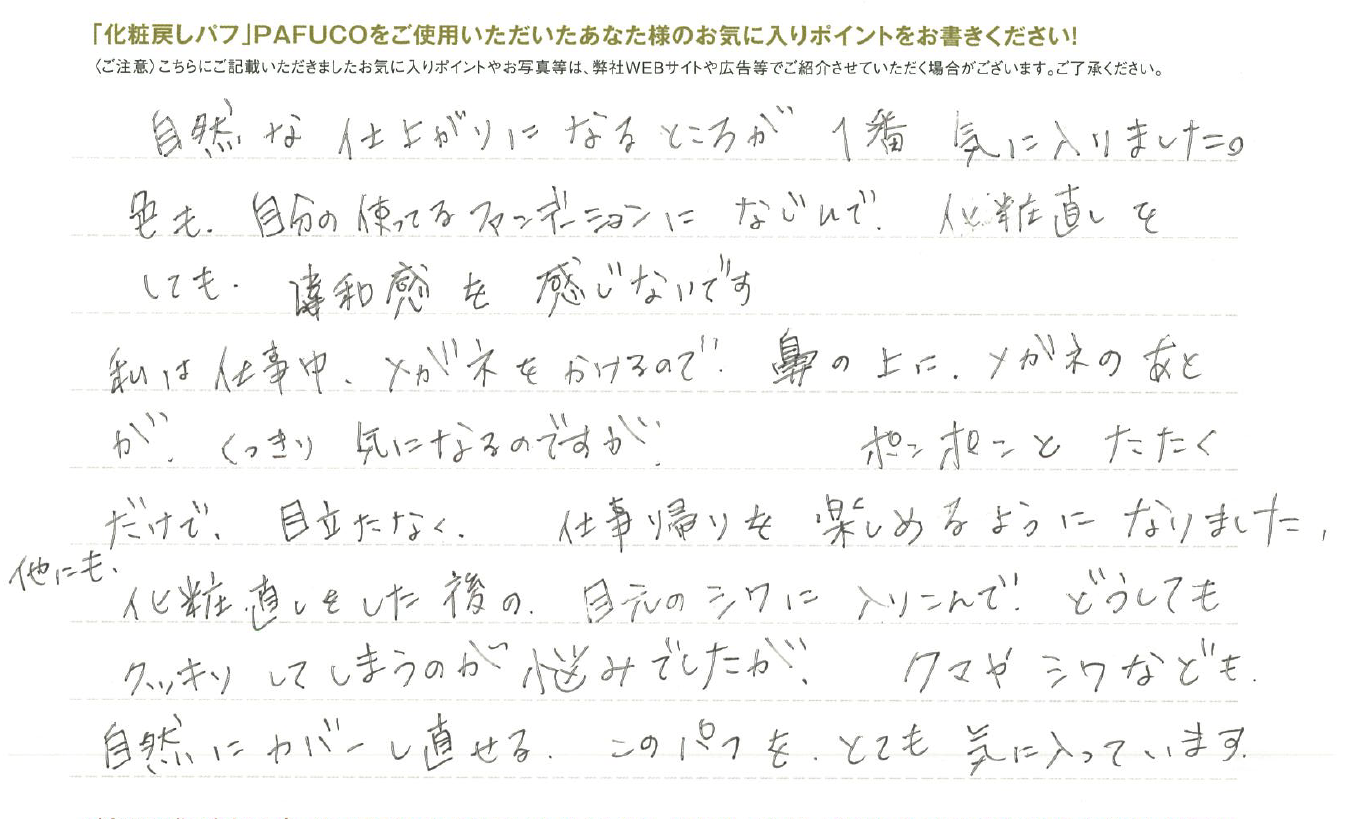 「化粧戻しパフ」PAFUCOをご使用いただいたあなた様のお気に入りポイントをお書きください!
〈ご注意〉こちらにご記載いただきましたお気に入りポイントやお写真等は、弊社WEBサイトや広告等でご紹介させていただく場合がございます。ご了承ください。
自然な仕上がりになるところが 1番 気に入りました。
色も、自分の使ってるファンデーションに なじんで、化粧直しを
しても、違和感を 感じないです
私は仕事中、メガネをかけるので、鼻の上に、メガネのあと
が、くっきり 気になるのですが、 ポンポンと たたく
だけで、目立たなく、 仕事帰りを 楽しめるように なりました、
他にも、
化粧直しをした後の、目元のシワに 入りこんで、どうしても
クッキリ してしまうのが 悩みでしたが、 クマや シワなども、
自然に カバーし直せる、このパフを、とても 気に入っています。